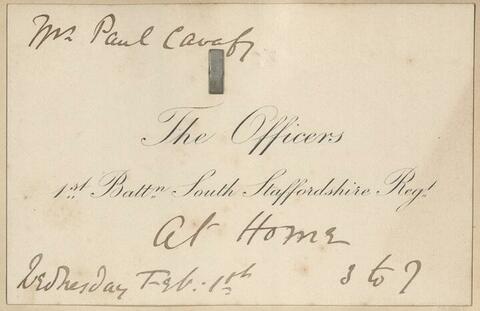 Mr Paul Cavafy
The Officers
1st Battn South Staffordshire Regt
At Home
Wednesday Feb. 1st 3 to 7